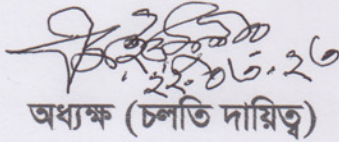 ২২.০৬.২৩
অধ্যক্ষ (চলতি দায়িত্ব)